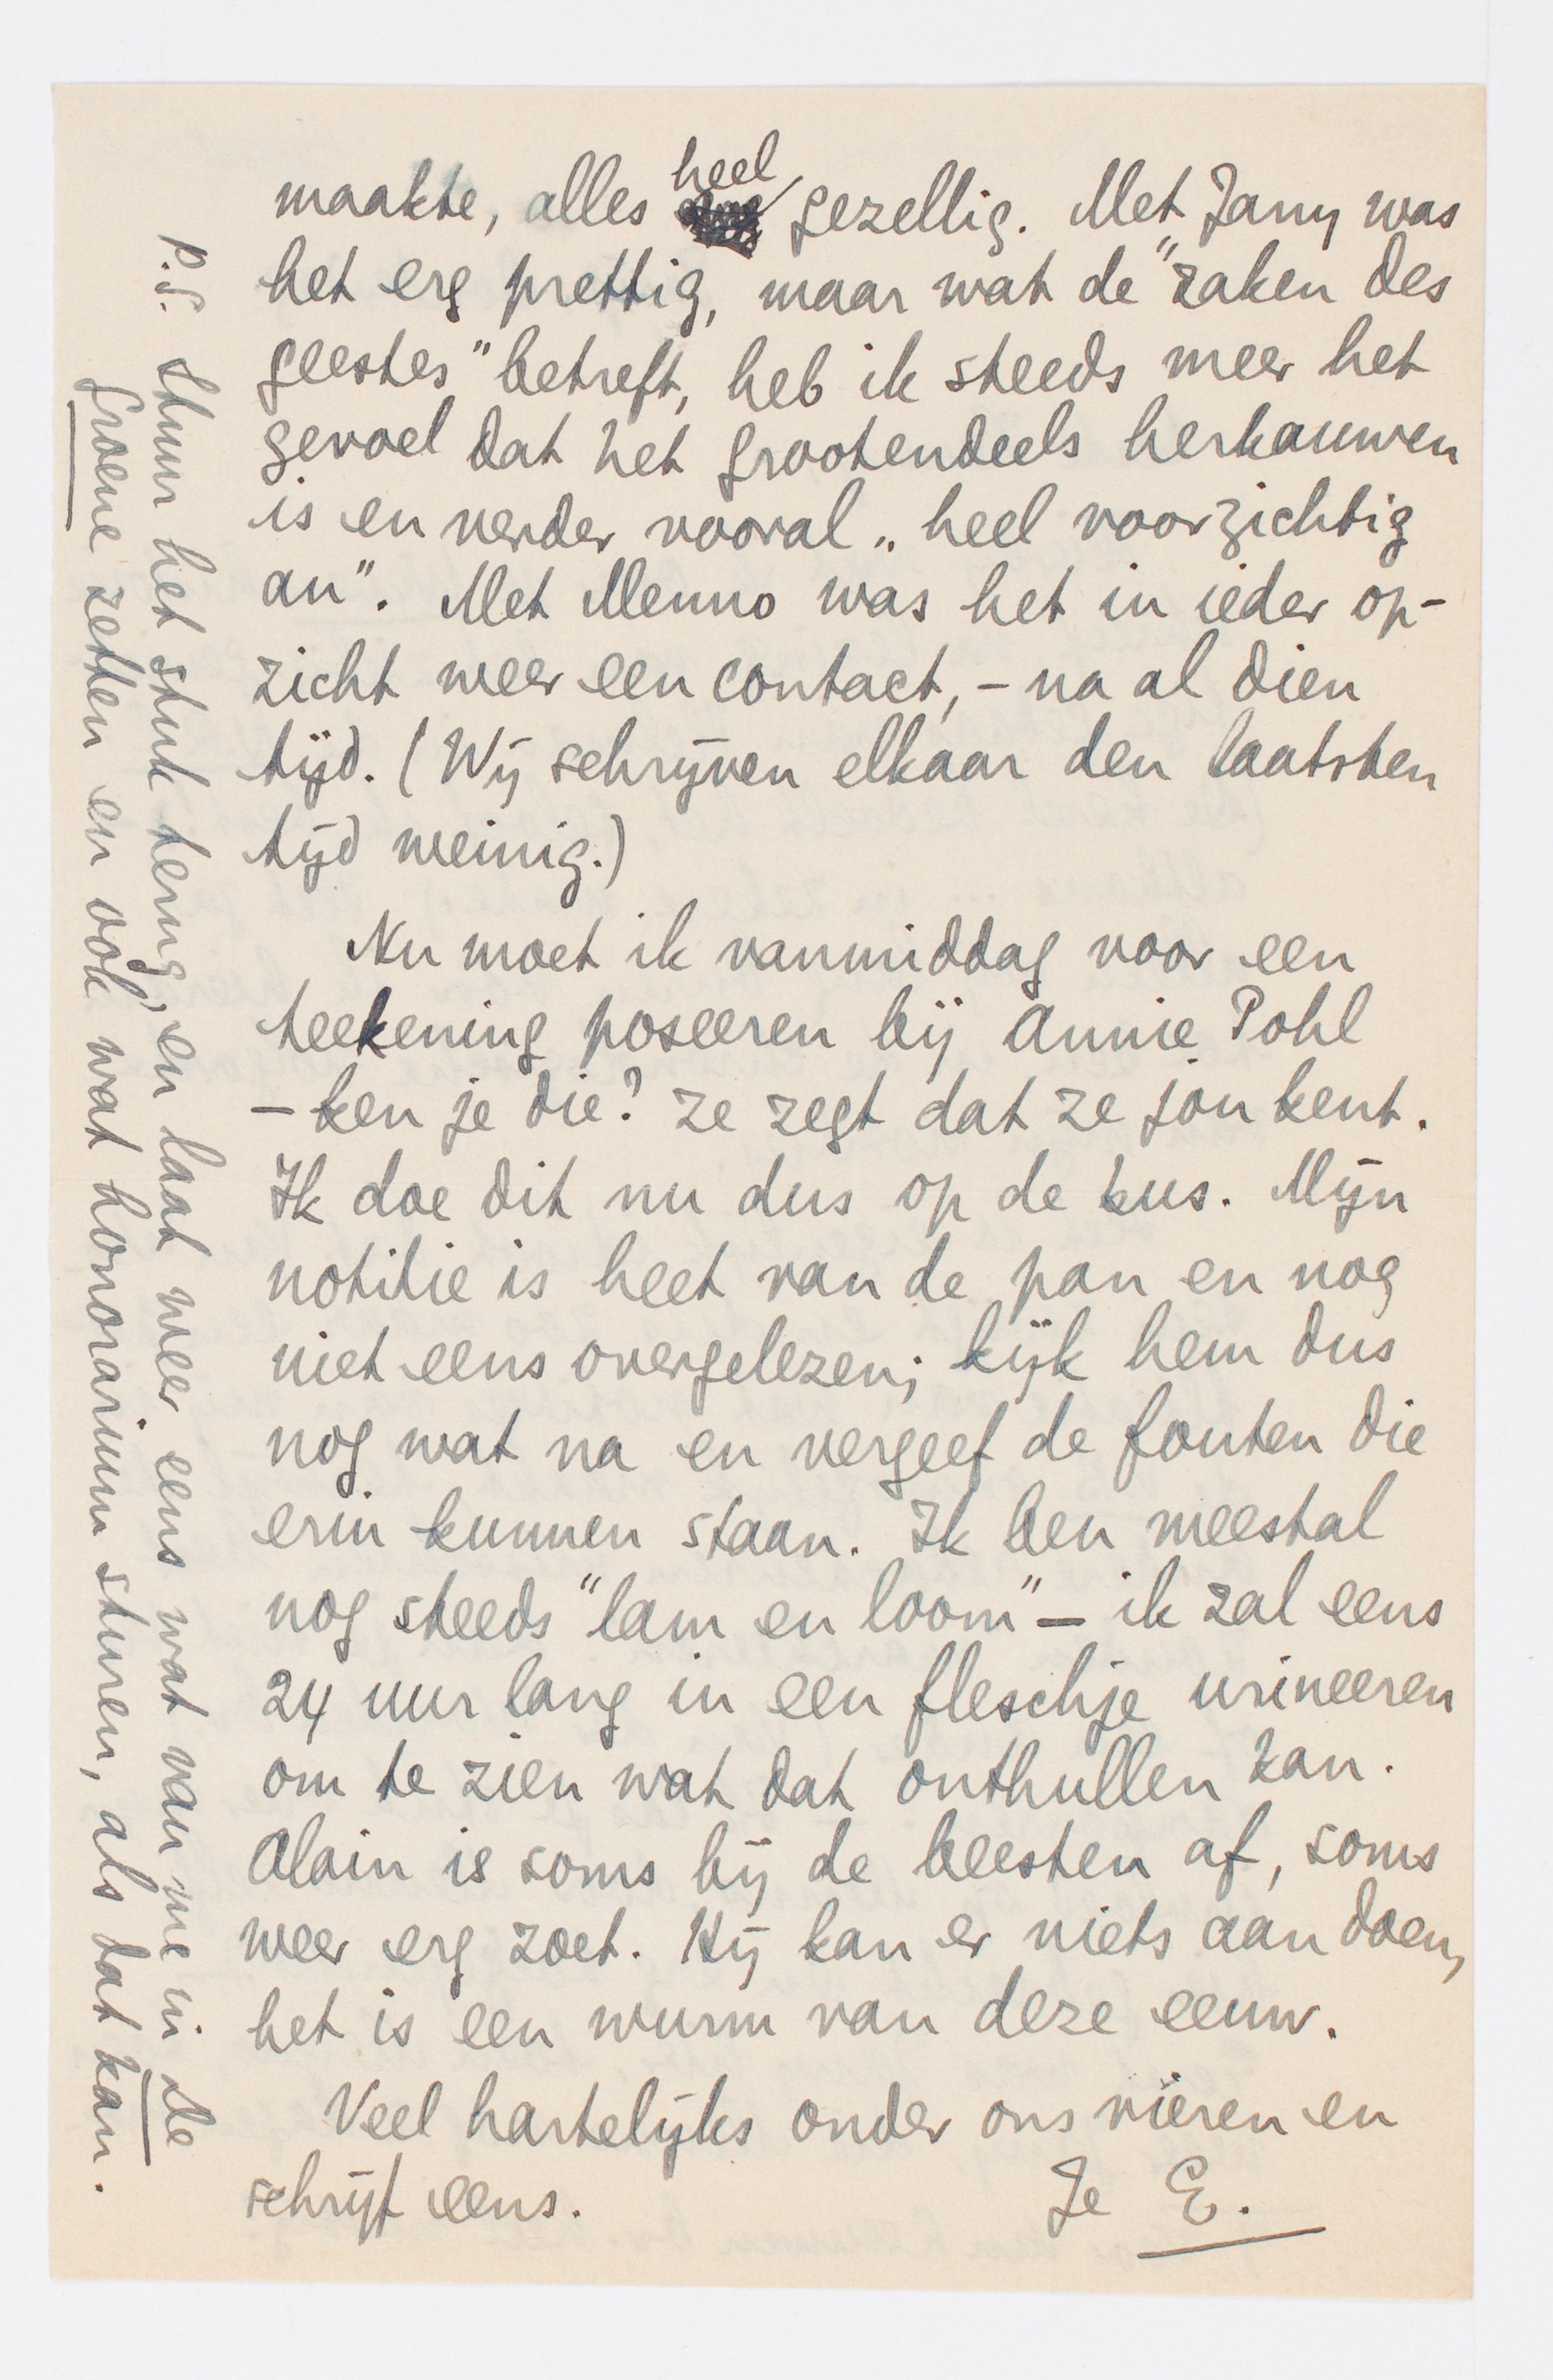 maakte, alles heel gezellig. Met Jany was
het erg prettig, maar wat de "zaken des
geestes" betreft, heb ik steeds meer het
gevoel dat het grootendeels herkauwen
is en verder vooral „heel voorzichtig
an”. Met Menno was het in ieder op-
zicht weer een contact, – na al dien
tijd. (Wij schrijven elkaar den laatsten
tijd weinig.)
Nu moet ik vanmiddag voor een
teekening poseeren bij Annie Pohl
– ken je die? ze zegt dat ze jou kent.
Ik doe dit nu dus op de bus. Mijn
notitie is heet van de pan en nog
niet eens overgelezen; kijk hem dus
nog wat na en vergeef de fouten die
erin kunnen staan. Ik ben meestal
nog steeds "lam en loom" – ik zal eens
24 uur lang in een fleschje urineeren
om te zien wat dat onthullen kan.
Alain is soms bij de beesten af, soms
weer erg zoet. Hij kan er niets aan doen,
het is een wurm van deze eeuw.
Veel hartelijks onder ons vieren en
schrijf eens. Je E.
P.S. Stuur het stuk terug, en laat weer eens wat van me in de
Groene zetten en ook wat honorarium sturen, als dat kan.